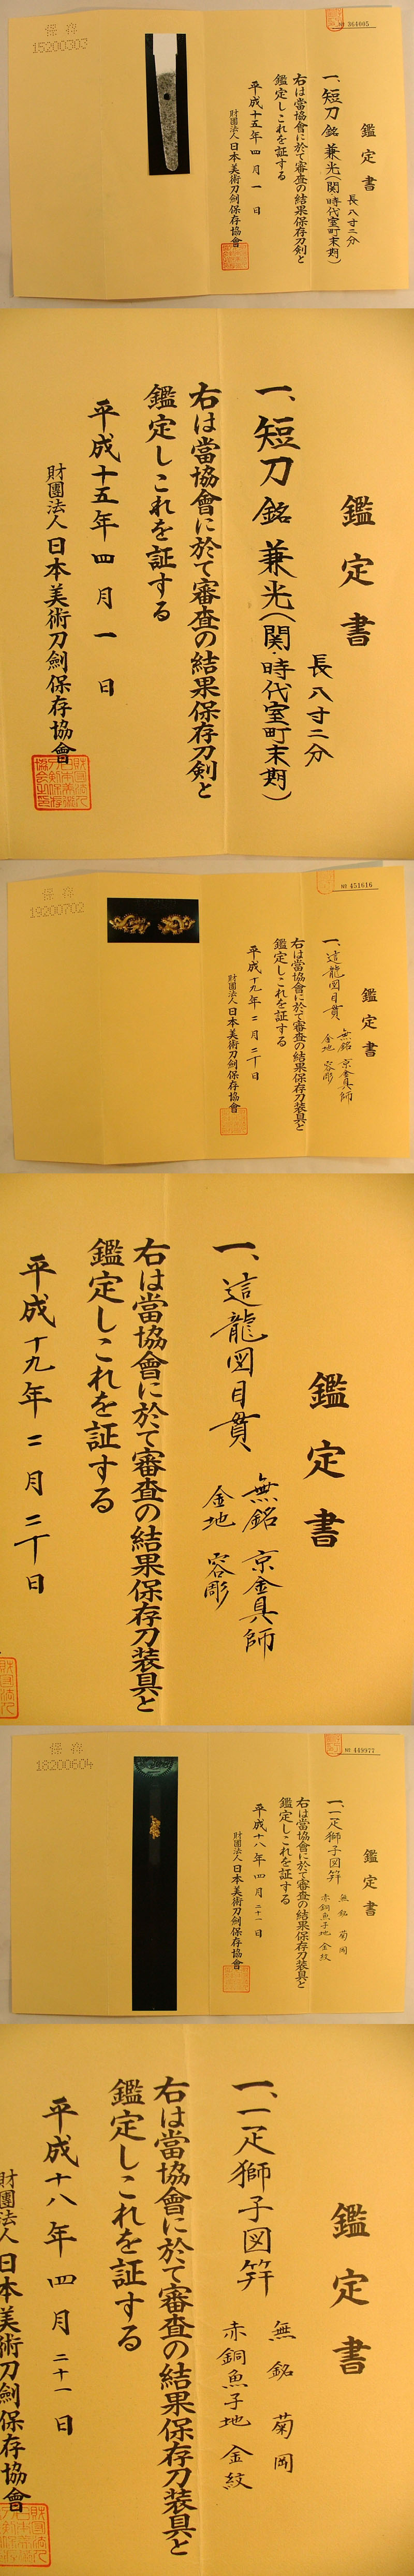 保存
15200303
№ 364005
鑑定書
一、短刀 銘 兼光(関・時代室町末期)
長八寸二分
右は當協會に於て審査の結果保存刀剣と
鑑定しこれを証する
平成十五年四月一日
財團法人日本美術刀劍保存協會
鑑定書
長八寸二分
一、短刀 銘 兼光(関・時代室町末期)
右は當協會に於て審査の結果保存刀剣と
鑑定しこれを証する
平成十五年四月一日
財團法人日本美術刀劍保存協會
保存
19200702
№ 451616
鑑定書
一、這龍図目貫
無銘 京金具師
金地 容彫
右は當協會に於て審査の結果保存刀装具と
鑑定しこれを証する
平成十九年二月二十日
財團法人日本美術刀劍保存協會
鑑定書
一、這龍図目貫
無銘 京金具師
金地 容彫
右は當協會に於て審査の結果保存刀装具と
鑑定しこれを証する
平成十九年二月二十日
保存
18200604
№ 449977
鑑定書
一、二疋獅子図笄
無銘 菊岡
赤銅魚子地 金紋
右は當協會に於て審査の結果保存刀装具と
鑑定しこれを証する
平成十八年四月二十一日
財團法人日本美術刀劍保存協會
鑑定書
一、二疋獅子図笄
無銘 菊岡
赤銅魚子地 金紋
右は當協會に於て審査の結果保存刀装具と
鑑定しこれを証する
平成十八年四月二十一日
財團法人日本美術刀劍保存協會